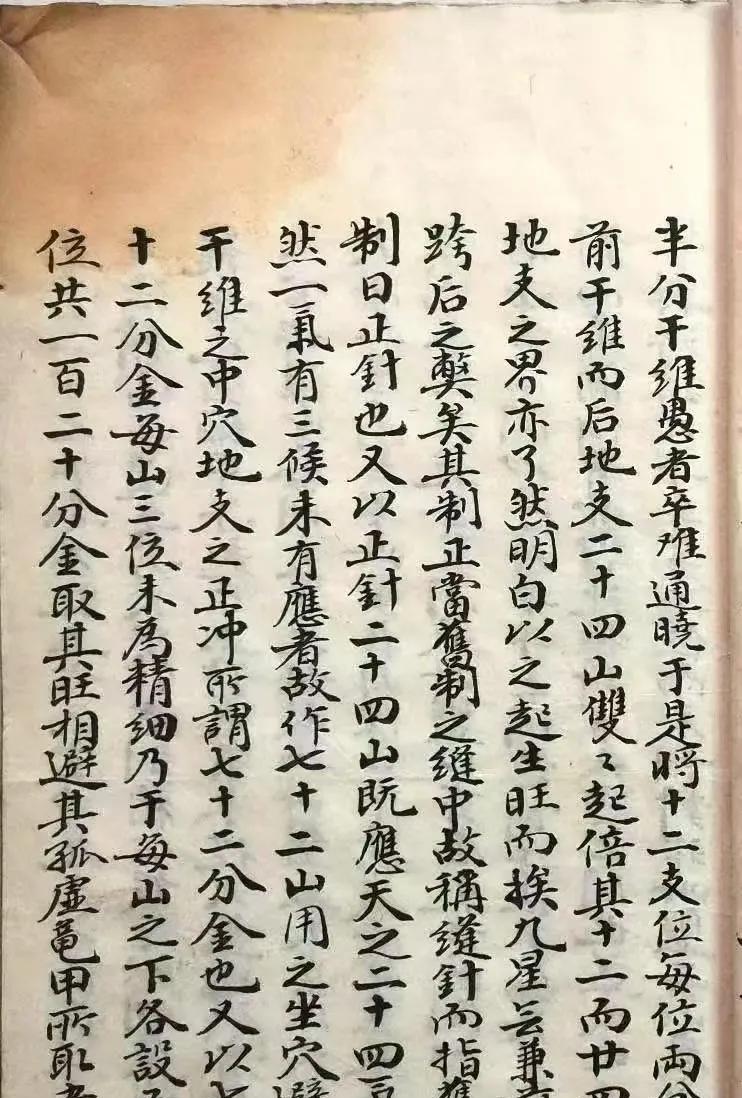 半分干维愚者卒难通晓于是将十二支位每位両分
前干维而后地支二十四山雙〻起倍其十二而廿四
地支之界亦了然明白以之起生旺而挨九星云兼
跨后之弊矣其制正當舊制之缝中故稱缝針而指舊
制曰正針也又以正針二十四山既應天之二十四
然一氣有三候未有應者故作七十二山用之坐穴避
干维之中穴地支之正冲所謂七十二分金也又以七
十二分金每山三位未為精细乃于每山之下各設
位共一百二十分金取其旺相避其孤虚龟甲所取者